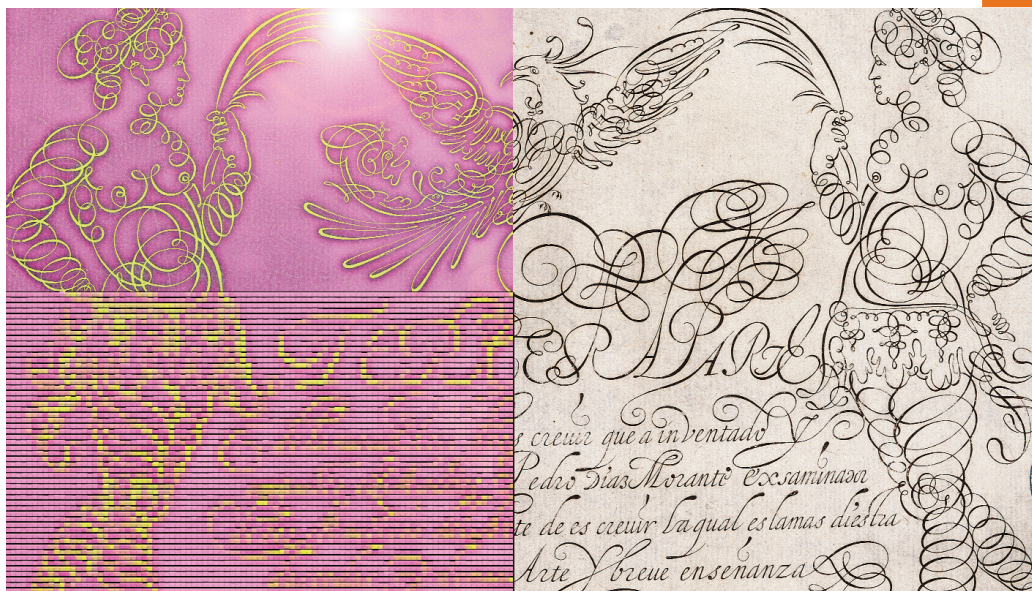 ER A PARTE
s creuir que a inventado Y
Pedro Diaz Morante Exsaminador
te de es creuir la qual es la mas diestra
Arte Y breue ensenanza